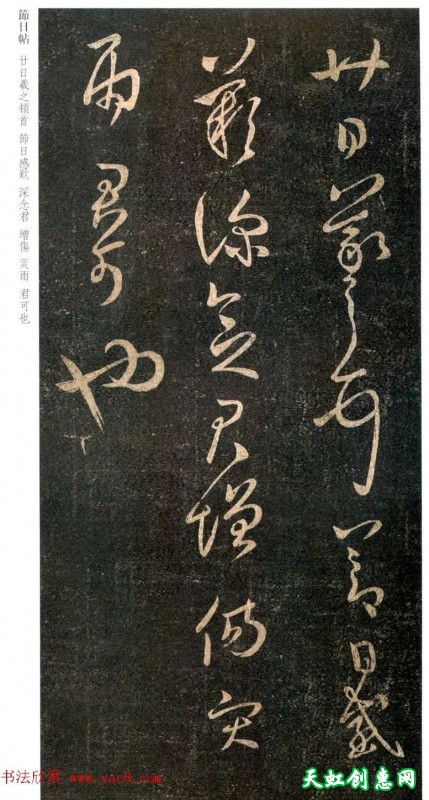 節日帖 廿日羲之頓首 節日感歎 深念君 增傷 災雨 君可也
廿日羲之頓首節日感
歎深念君增傷災
雨君可也
书法欣赏 www.yac8.com
天虹创惠网